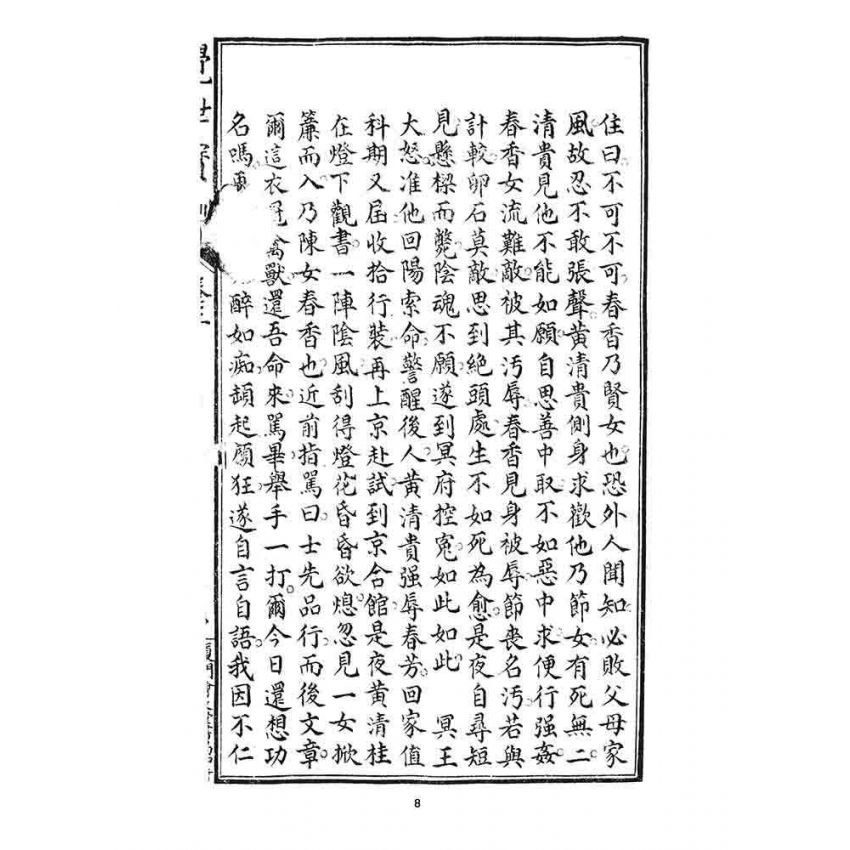 住曰不可不可春香乃賢女也恐外人聞知必敗父母家
風故忍不敢張聲黃清貴側身求歡他乃節女有死無二
清貴見他不能如願自思善中取不如惡中求便行强姦
春香女流難敵被其汚辱春香見身被辱節喪名汚若與
計較卵石莫敵思到絕頭處生不如死為愈是夜自尋短
見懸樑而斃陰魂不願遂到冥府控寃如此如此　冥王
大怒准他回陽索命警醒後人黃清貴强辱春芳回家值
科期又屆收拾行裝再上京赴試到京合館是夜黃清桂
在燈下觀書一陣陰風刮得燈花昏昏欲熄忽見一女掀
簾而入乃陳女春香也近前指罵曰士先品行而後文章
爾這衣冠禽獸還吾命來罵畢舉手一打爾今日還想功
名嗎
醉如痴顛起願狂遂自言自語我因不仁
覺世寶
8